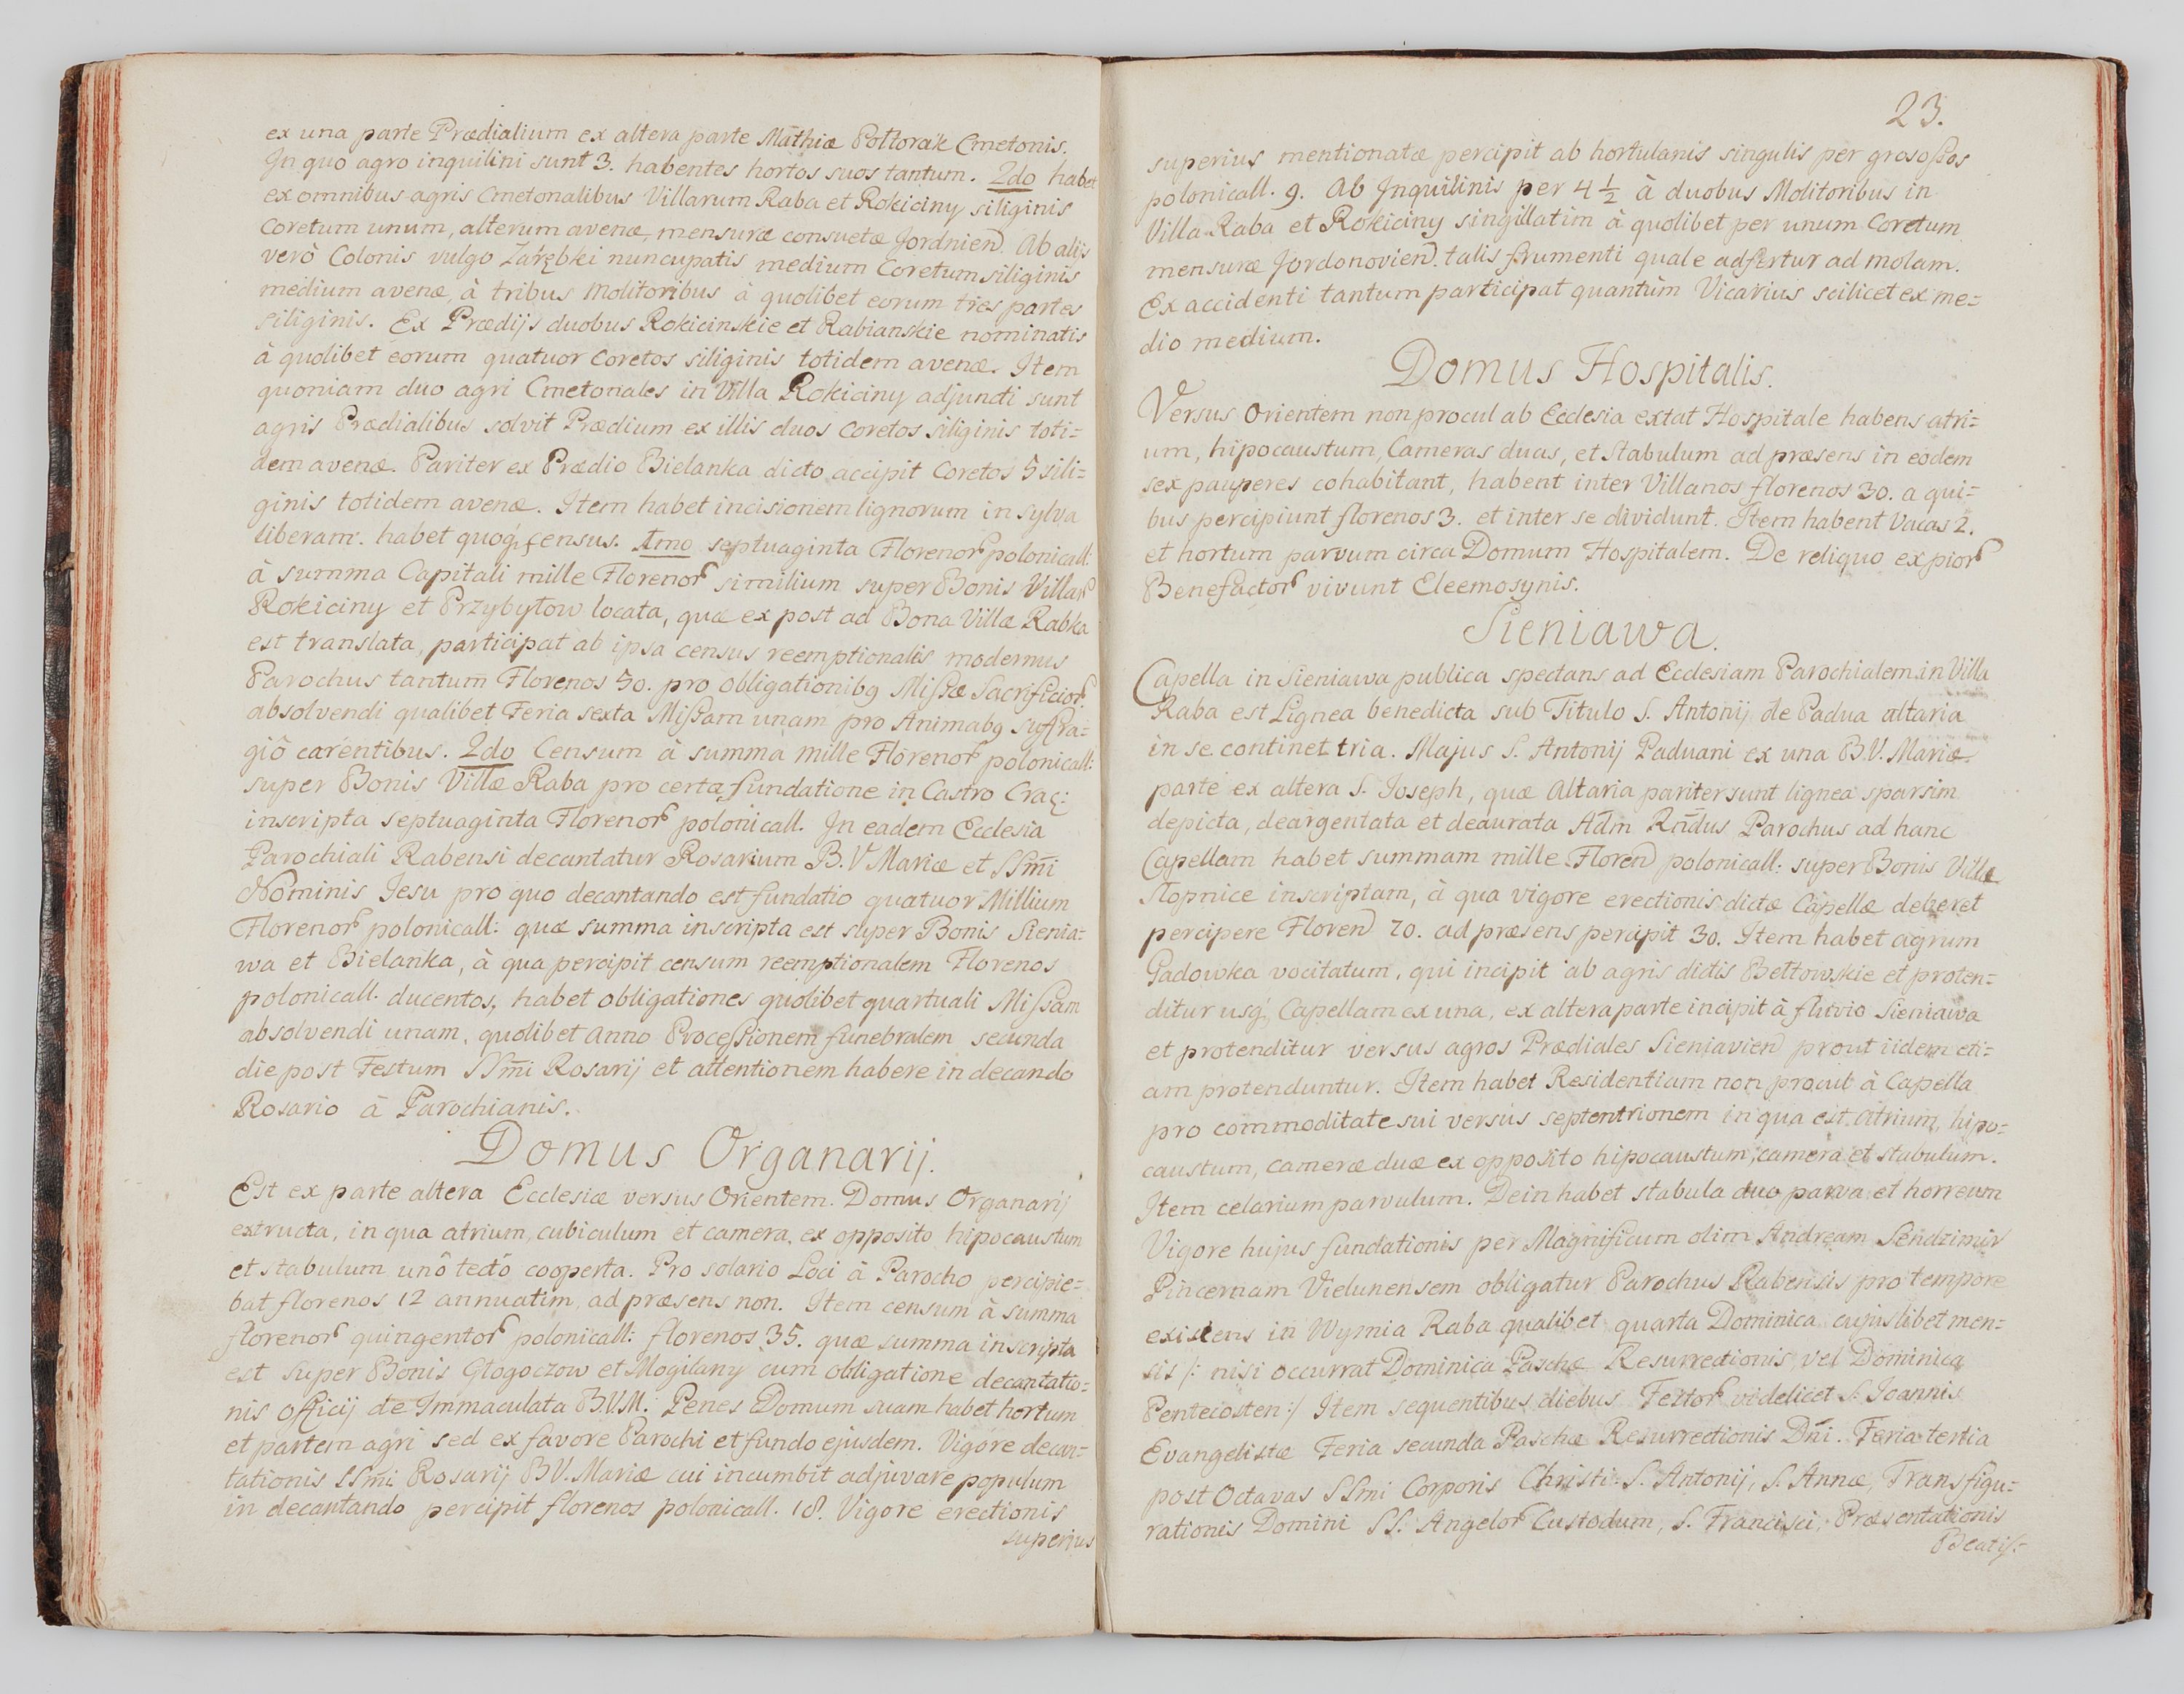 ex una parte Prædialium ex altera parte Mathiæ Poltorak Cmetonis.
In quo agro inquilini sunt 3. habentes hortos suos tantum. 2do habet
ex omnibus agris Cmetonalibus Villarum Raba et Rokiciny siliginis
Coretum unum, alterum avenæ, mensuræ consuetæ Jordnien. Ab aliis
verò Colonis vulgo Zarębki nuncupatis medium Coretum siliginis
medium avenæ, à tribus Molitoribus à quolibet eorum tres partes
siliginis. Ex Prædijs duobus Rokicinskie et Rabianskie nominatis
à quolibet eorum quatuor coretos siliginis totidem avenæ. Item
quoniam duo agri Cmetonales in Villa Rokiciny adjuncti sunt
agris Prædialibus solvit Prædium ex illis duos coretos siliginis toti=
dem avenæ. Pariter ex Prædio Bielanka dicto accipit Coretos 5 sili=
ginis totidem avenæ. Item habet incisionem lignorum in sylva
liberam. habet quoq́ census. 1mo septuaginta Florenor polonicall:
à summa Capitali mille Florenor similium super Bonis Villar
Rokiciny et Przybytow locata, quæ ex post ad Bona Villæ Rabka
est translata, participat ab ipsa census reemptionalis modernus
Parochus tantum Florenos 50. pro obligationibg Mißæ Sacrificior
absolvendi qualibet Feria sexta Mißam unam pro Animabg suffra=
giô carentibus. 2do Censum à summa mille Florenor polonicall:
super Bonis Villæ Raba pro certa fundatione in Castro Crac:
inscripta septuaginta Florenor polonicall. In eadem Ecclesia
Parochiali Rabensi decantatur Rosarium B. V Mariæ et SSm̃i
Nominis Iesu pro quo decantando est fundatio quatuor Millium
Florenor polonicall: quæ summa inscripta est super Bonis Sienia=
wa et Bielanka, à qua percipit censum reemptionalem Florenos
polonicall. ducentos, habet obligationes quolibet quartuali Mißam
absolvendi unam, quolibet anno Proceßionem funebralem secunda
die post Festum SSm̃i Rosarij et attentionem habere in decando
Rosario à Parochianis.
Domus Organarij.
Est ex parte altera Ecclesiæ versus Orientem. Domus Organarij
extructa, in qua atrium, cubiculum et camera, ex opposito hipocaustum
et stabulum unô tectô cooperta. Pro solario Loci à Parocho percipie=
bat florenos 12 annuatim, ad præsens non. Item censum à summa
florenor quingentor polonicall: florenos 35. quæ summa inscripta
est super Bonis Głogoczow et Mogilany cum obligatione decantatio=
nis officij de Immaculata B.V.M: Penes Domum suam habet hortum
et partem agri sed ex favore Parochi et fundo ejusdem. Vigore decan=
tationis SSm̃i Rosarij B V. Mariæ cui incumbit adjuvare populum
in decantando percipit florenos polonicall. 18. Vigore erectionis
superius
23.
superius mentionatæ percipit ab hortulanis singulis per grosoßos
polonicall. 9. Ab Inquilinis per 4 1/2 à duobus Molitoribus in
Villa Raba et Rokiciny singillatim à quolibet per unum Coretum
mensuræ Jordonovien. talis frumenti quale adfertur ad molam.
Ex accidenti tantum participat quantùm Vicarius scilicet ex me=
dio medium.
Domus Hospitalis.
Versus Orientem non procul ab Ecclesia extat Hospitale habens atri=
um, hipocaustum, Cameras duas, et Stabulum ad præsens in eodem
sex pauperes cohabitant, habent inter Villanos florenos 30. a qui=
bus percipiunt florenos 3. et inter se dividunt. Item habent Vacas 2.
et hortum parvum circa Domum Hospitalem. De reliquo ex pior
Benefactor vivunt Eleemosynis.
Sieniawa.
Capella in Sieniawa publica spectans ad Ecclesiam Parochialem in Villa
Raba est Lignea benedicta sub Titulo S. Antonij de Padua altaria
in se continet tria. Majus S. Antonij Paduani ex una B.V. Mariæ
parte ex altera S. Ioseph, quæ Altaria pariter sunt lignea sparsim
depicta, deargentata et deaurata Adm̃ Rñdus Parochus ad hanc
Capellam habet summam mille Floren polonicall: super Bonis Villæ
Słopnice inscriptam, à qua vigore erectionis dictæ Capellæ deberet
percipere Floren 70. ad præsens percipit 30. Item habet agrum
Gadowka vocitatum, qui incipit ab agris dictis Bettowskie et proten=
ditur usq́ Capellam ex una, ex altera parte incipit à fluvio Sieniawa
et protenditur versus agros Prædiales Sieniavien prout iidem eti=
am protenduntur. Item habet Residentiam non procul à Capella
pro commoditate sui versùs septentrionem in qua est atrium, hipo=
caustum, cameræ duæ ex opposito hipocaustum, camera et stabulum.
Item celarium parvulum. Dein habet stabula duo parva et horreum
Vigore hujus fundationis per Magnificum olim Andream Sendzimir
Pincernam Vielunensem obligatur Parochus Rabensis pro tempore
existens in Wyżnia Raba qualibet quarta Dominica cujuslibet men=
sis /: nisi occurrat Dominica Paschæ Resurrectionis vel Dominica
Pentecosten :/ Item sequentibus diebus Festor videlicet S. Ioannis
Evangelistæ Feria secunda Paschæ Resurrectionis Dñi. Feria tertia
post Octavas SSm̃i Corporis Christi. S. Antonij, S. Annæ, Transfigu=
rationis Domini SS. Angelor Custodum, S. Francisci, Præsentationis
Beatiß: